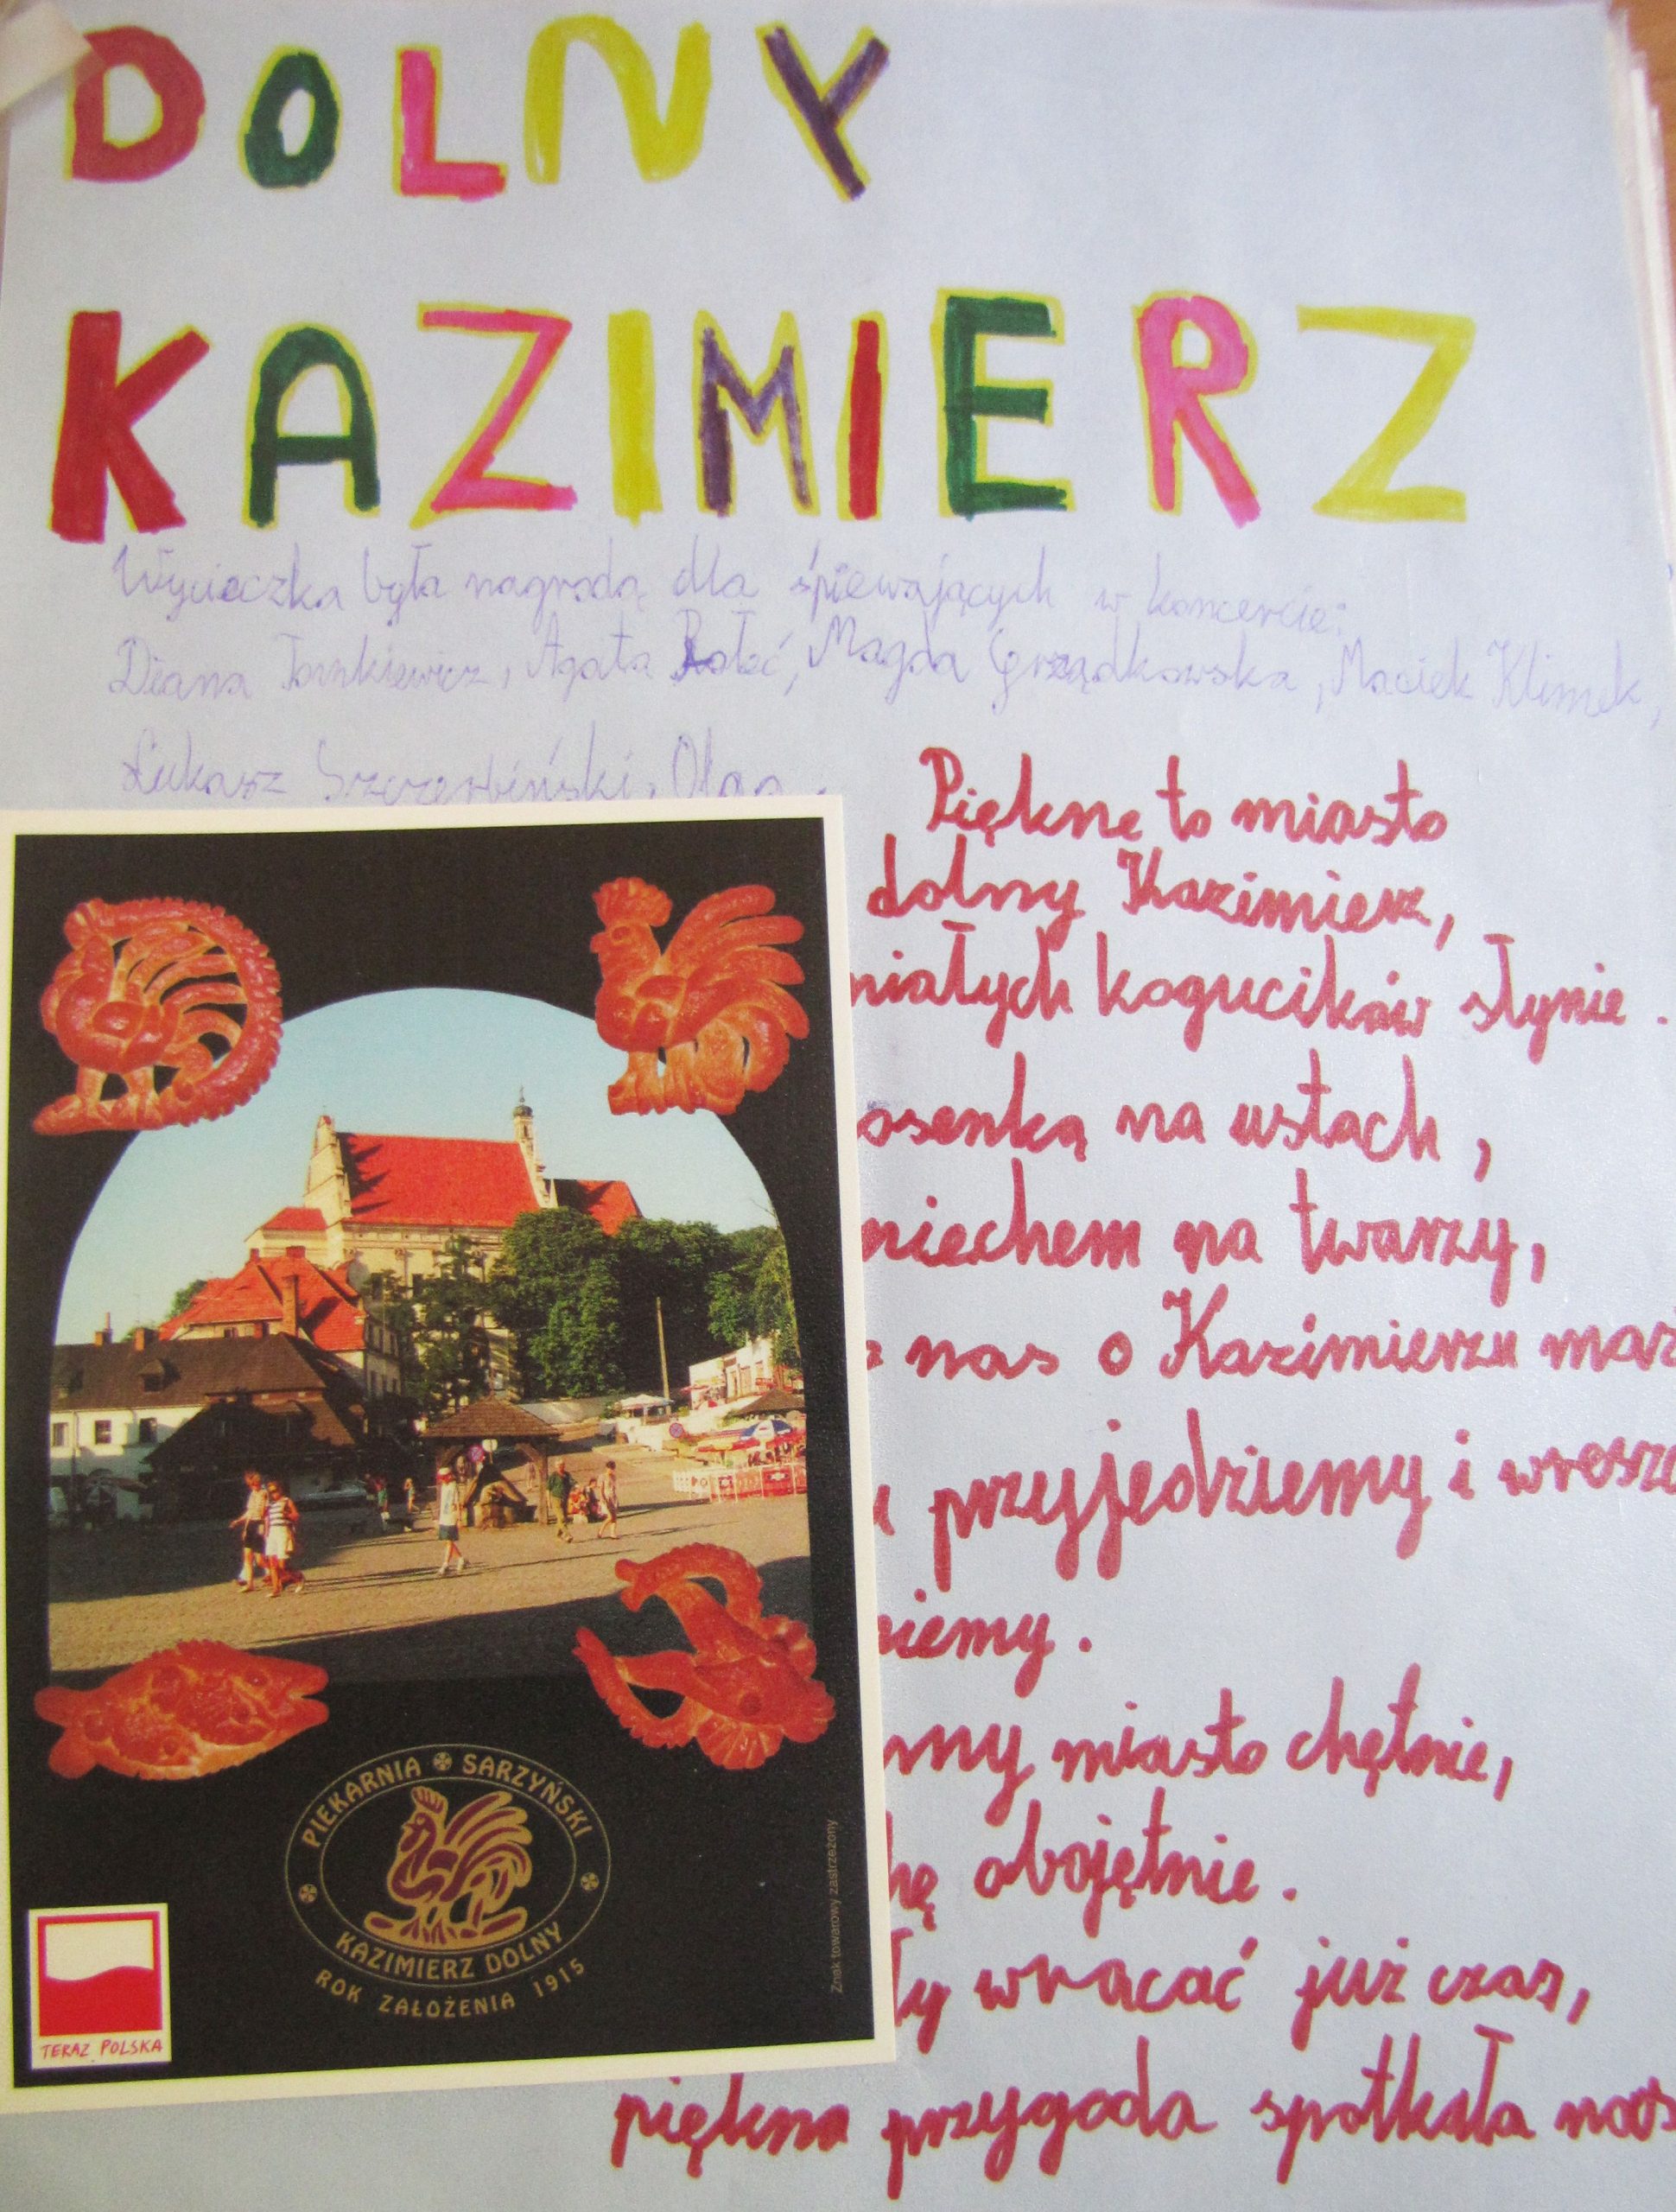 DOLNY
KAZIMIERZ
Wycieczka była nagrodą dla śpiewających w koncercie:
Diana, Agata, Magda Grządkowska, Maciek Klimek,
Łukasz Szczerbiński, Olga
Piękne to miasto
dolny Kazimierz,
niałych kogucików słynie.
osenką na ustach,
miechem na twarzy,
z nas o Kazimierzu marz
u przyjedziemy i wresz
niemy.
my miasto chętnie,
hę obojętnie.
ły wracać już czas,
piękna przygoda spotkała nas
PIEKARNIA SARZYŃSKI
KAZIMIERZ DOLNY
ROK ZAŁOŻENIA 1915
Znak towarowy zastrzeżony
TERAZ POLSKA